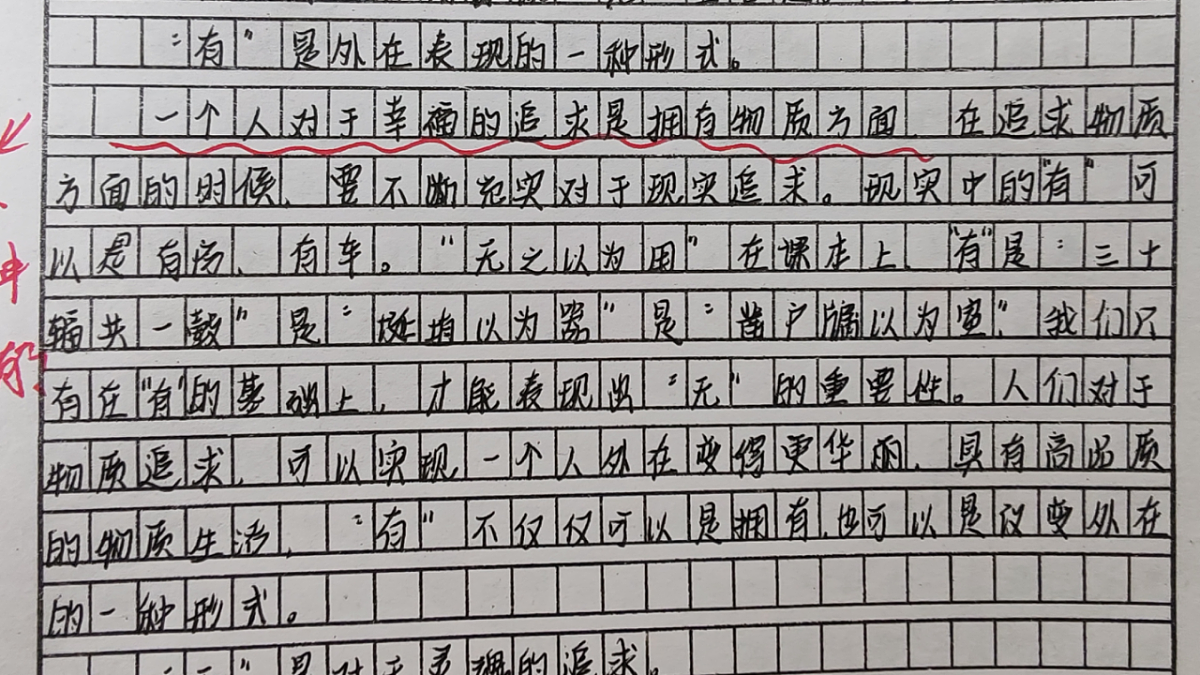 “有”是外在表现的一种形式。
一个人对于幸福的追求是拥有物质方面、在追求物质
方面的时候、要不断充实对于现实追求。现实中的“有”可
以是有房、有车。“无之以为用”在课本上、“有”是“三十
辐共一毂”是“埏埴以为器”是“凿户牖以为室”我们只
有在“有”的基础上、才能表现出“无”的重要性。人们对于
物质追求、可以实现一个人外在变得更华丽、具有高品质
的物质生活、“有”不仅仅可以是拥有、也可以是改变外在
的一种形式。
”是对于灵魂的追求。